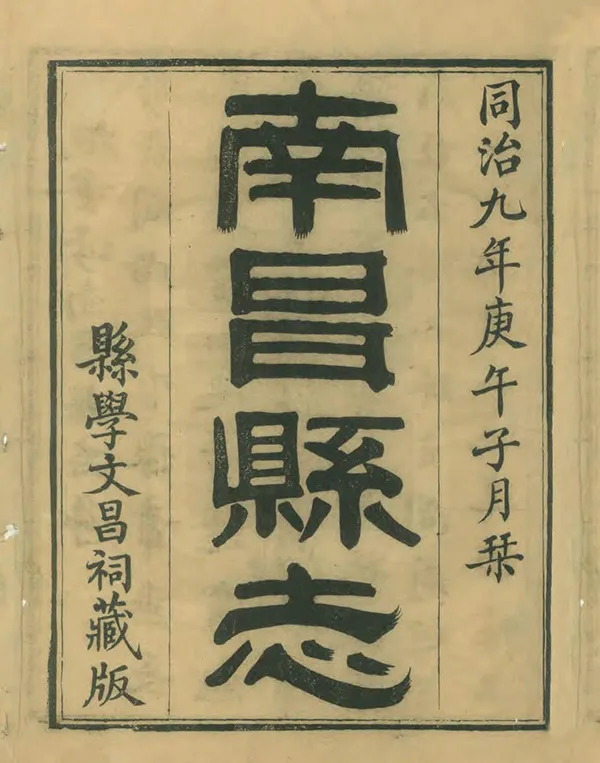 同治九年庚午子月栞
南昌縣志
縣學文昌祠藏版